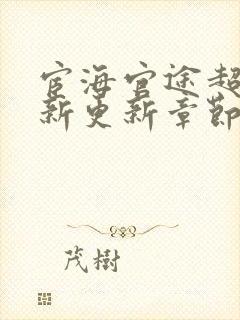 宦海官途超
新更新章節
茂樹